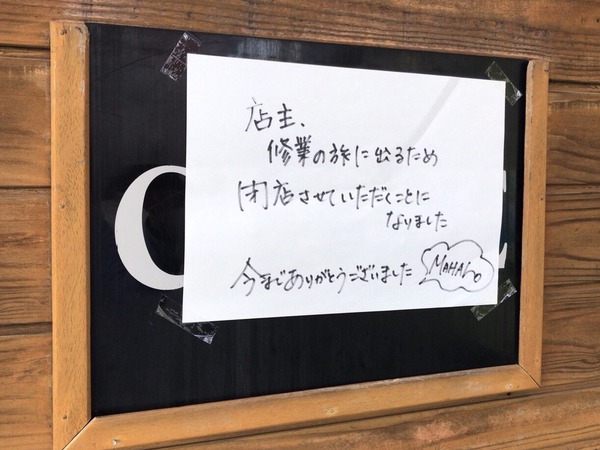 店主、
修業の旅に出るため
閉店させていただくことに
なりました
今までありがとうございました